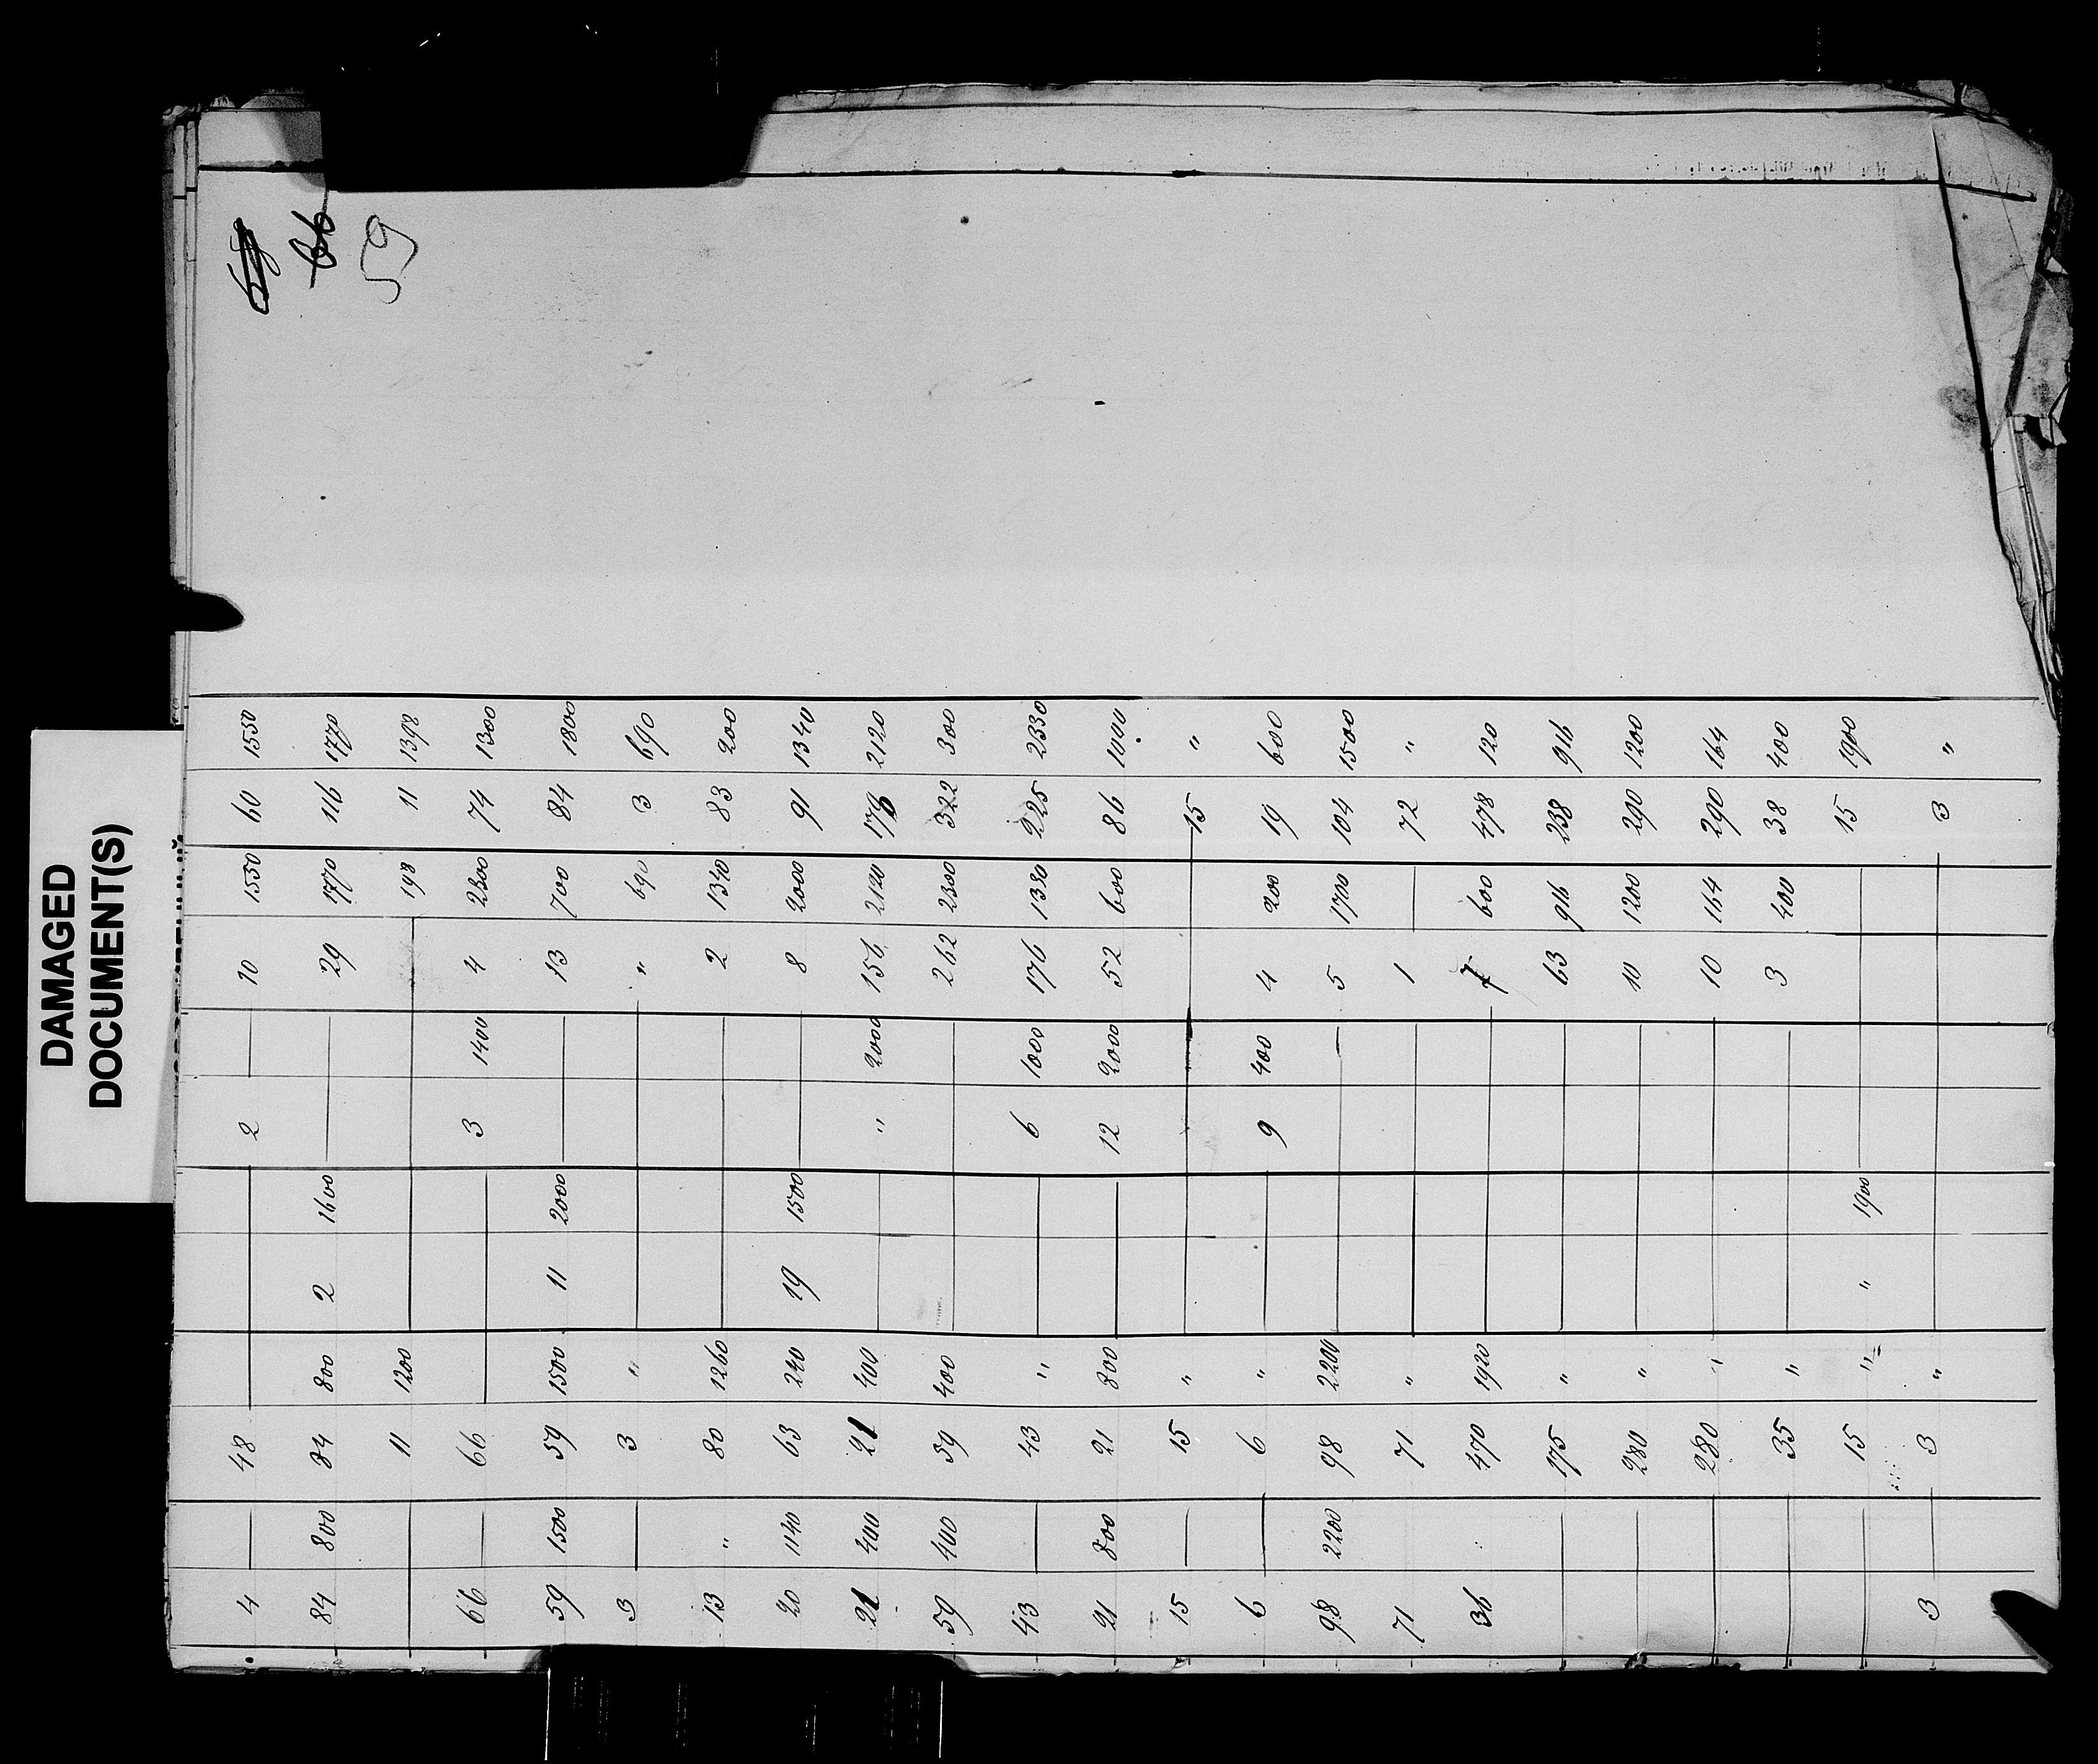 DAMAGED
DOCUMENT(S)
66
59
4 — 48 — 2 — 10 1550 60 1550
84 800 84 800 2 1600 — 29 1770 116 1770
11 1200 198 11 1398
66 — 66 — 3 1400 4 2300 74 1300
59 1500 59 1500 11 2000 13 700 84 1800
3 — 3 " " 690 3 690
13 " 80 1260 2 1340 83 200
20 1140 63 240 19 1500 8 2000 91 1340
21 400 21 400 " 2000 156 2120 176 2120
59 400 59 400 262 2300 322 300
43 — 43 " 6 1000 176 1330 225 2330
21 800 21 800 12 2000 52 600 86 1000
15 — 15 " 15 "
6 — 6 " 9 400 4 200 19 600
98 2200 98 2200 — 5 1700 104 1500
71 71 " 1 — 72 "
36 470 1920 7 600 478 120
175 " 63 916 238 916
280 " 10 1200 290 1200
280 " 10 164 290 164
35 " 3 400 38 400
15 " " 1900 15 1900
3 3 " 3 "